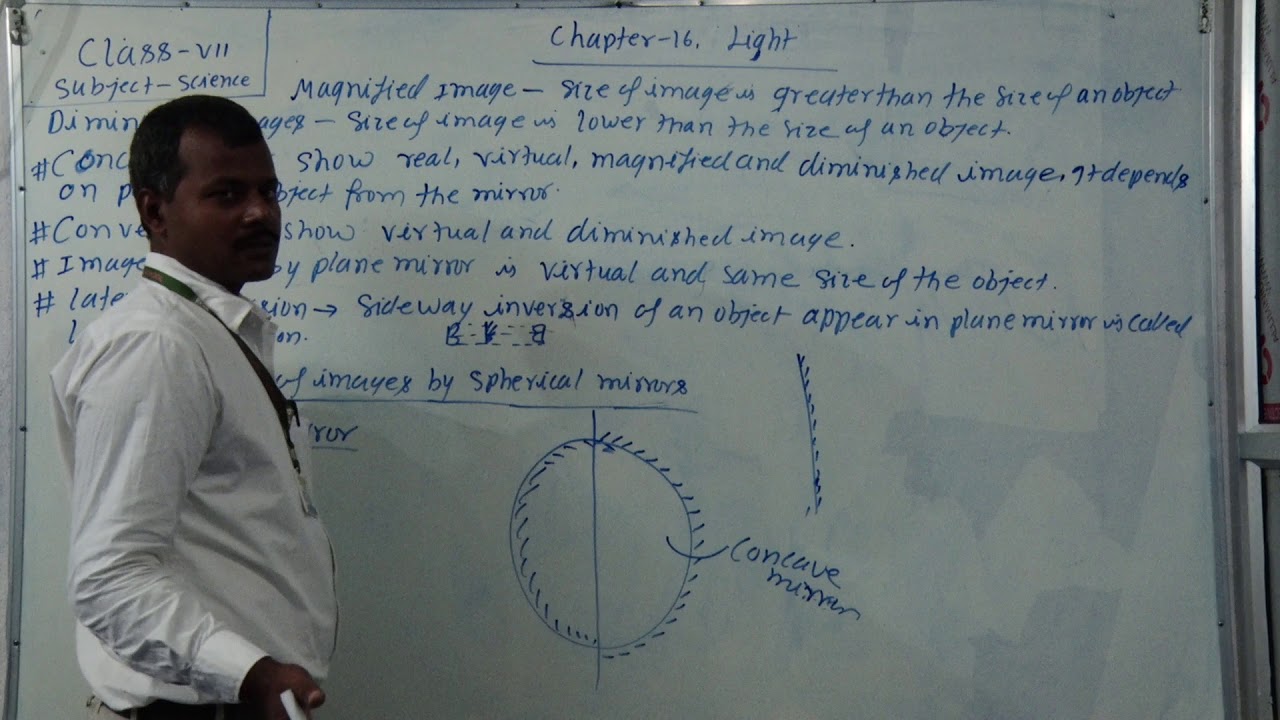 Class-VII
Subject-Science
Chapter-16. Light
Magnified Image - Size of image is greater than the size of an object
Dimin ages - size of image is lower than the size of an object.
#Conc show real, virtual, magnified and diminished image, It depends
on p bject from the mirror.
#Conve show virtual and diminished image.
# Image by plane mirror is virtual and same size of the object.
# late sion → sideway inversion of an object appear in plane mirror is called
l on.
of images by spherical mirrors
rror
Concave
mirror